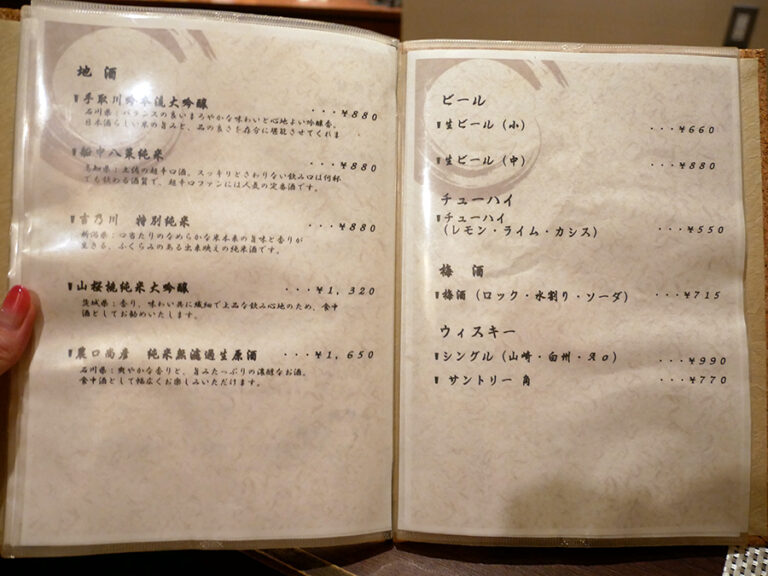 地 酒
手取川吟本流大吟醸 ・・・¥880
石川県：バランスの良いまろやかな味わいと心地よい吟醸香。
日本酒らしい米の旨みと、品の良さを存分に堪能させてくれま
船中八策純米 ・・・¥880
高知県：土佐の超辛口酒。スッキリとさわりない飲み口は何杯
でも飲める酒質で、超辛口ファンには人気の定番酒です。
吉乃川 特別純米 ・・・¥880
新潟県：口当たりのなめらかな米本来の旨味と香りが
生きる、ふくらみのある出来映えの純米酒です。
山桜桃純米大吟醸 ・・・¥1,320
茨城県：香り、味わい共に繊細で上品な飲み心地のため、食中
酒としてお勧めいたします。
農口尚彦 純米無濾過生原酒 ・・・¥1,650
石川県：爽やかな香りと、旨みたっぷりの濃醇なお酒。
食中酒として幅広くお楽しみいただけます。
ビール
生ビール（小） ・・・¥660
生ビール（中） ・・・¥880
チューハイ
チューハイ
（レモン・ライム・カシス） ・・・¥550
梅 酒
梅酒（ロック・水割り・ソーダ） ・・・¥715
ウィスキー
シングル（山崎・白州・ ・・・¥990
サントリー 角 ・・・¥770